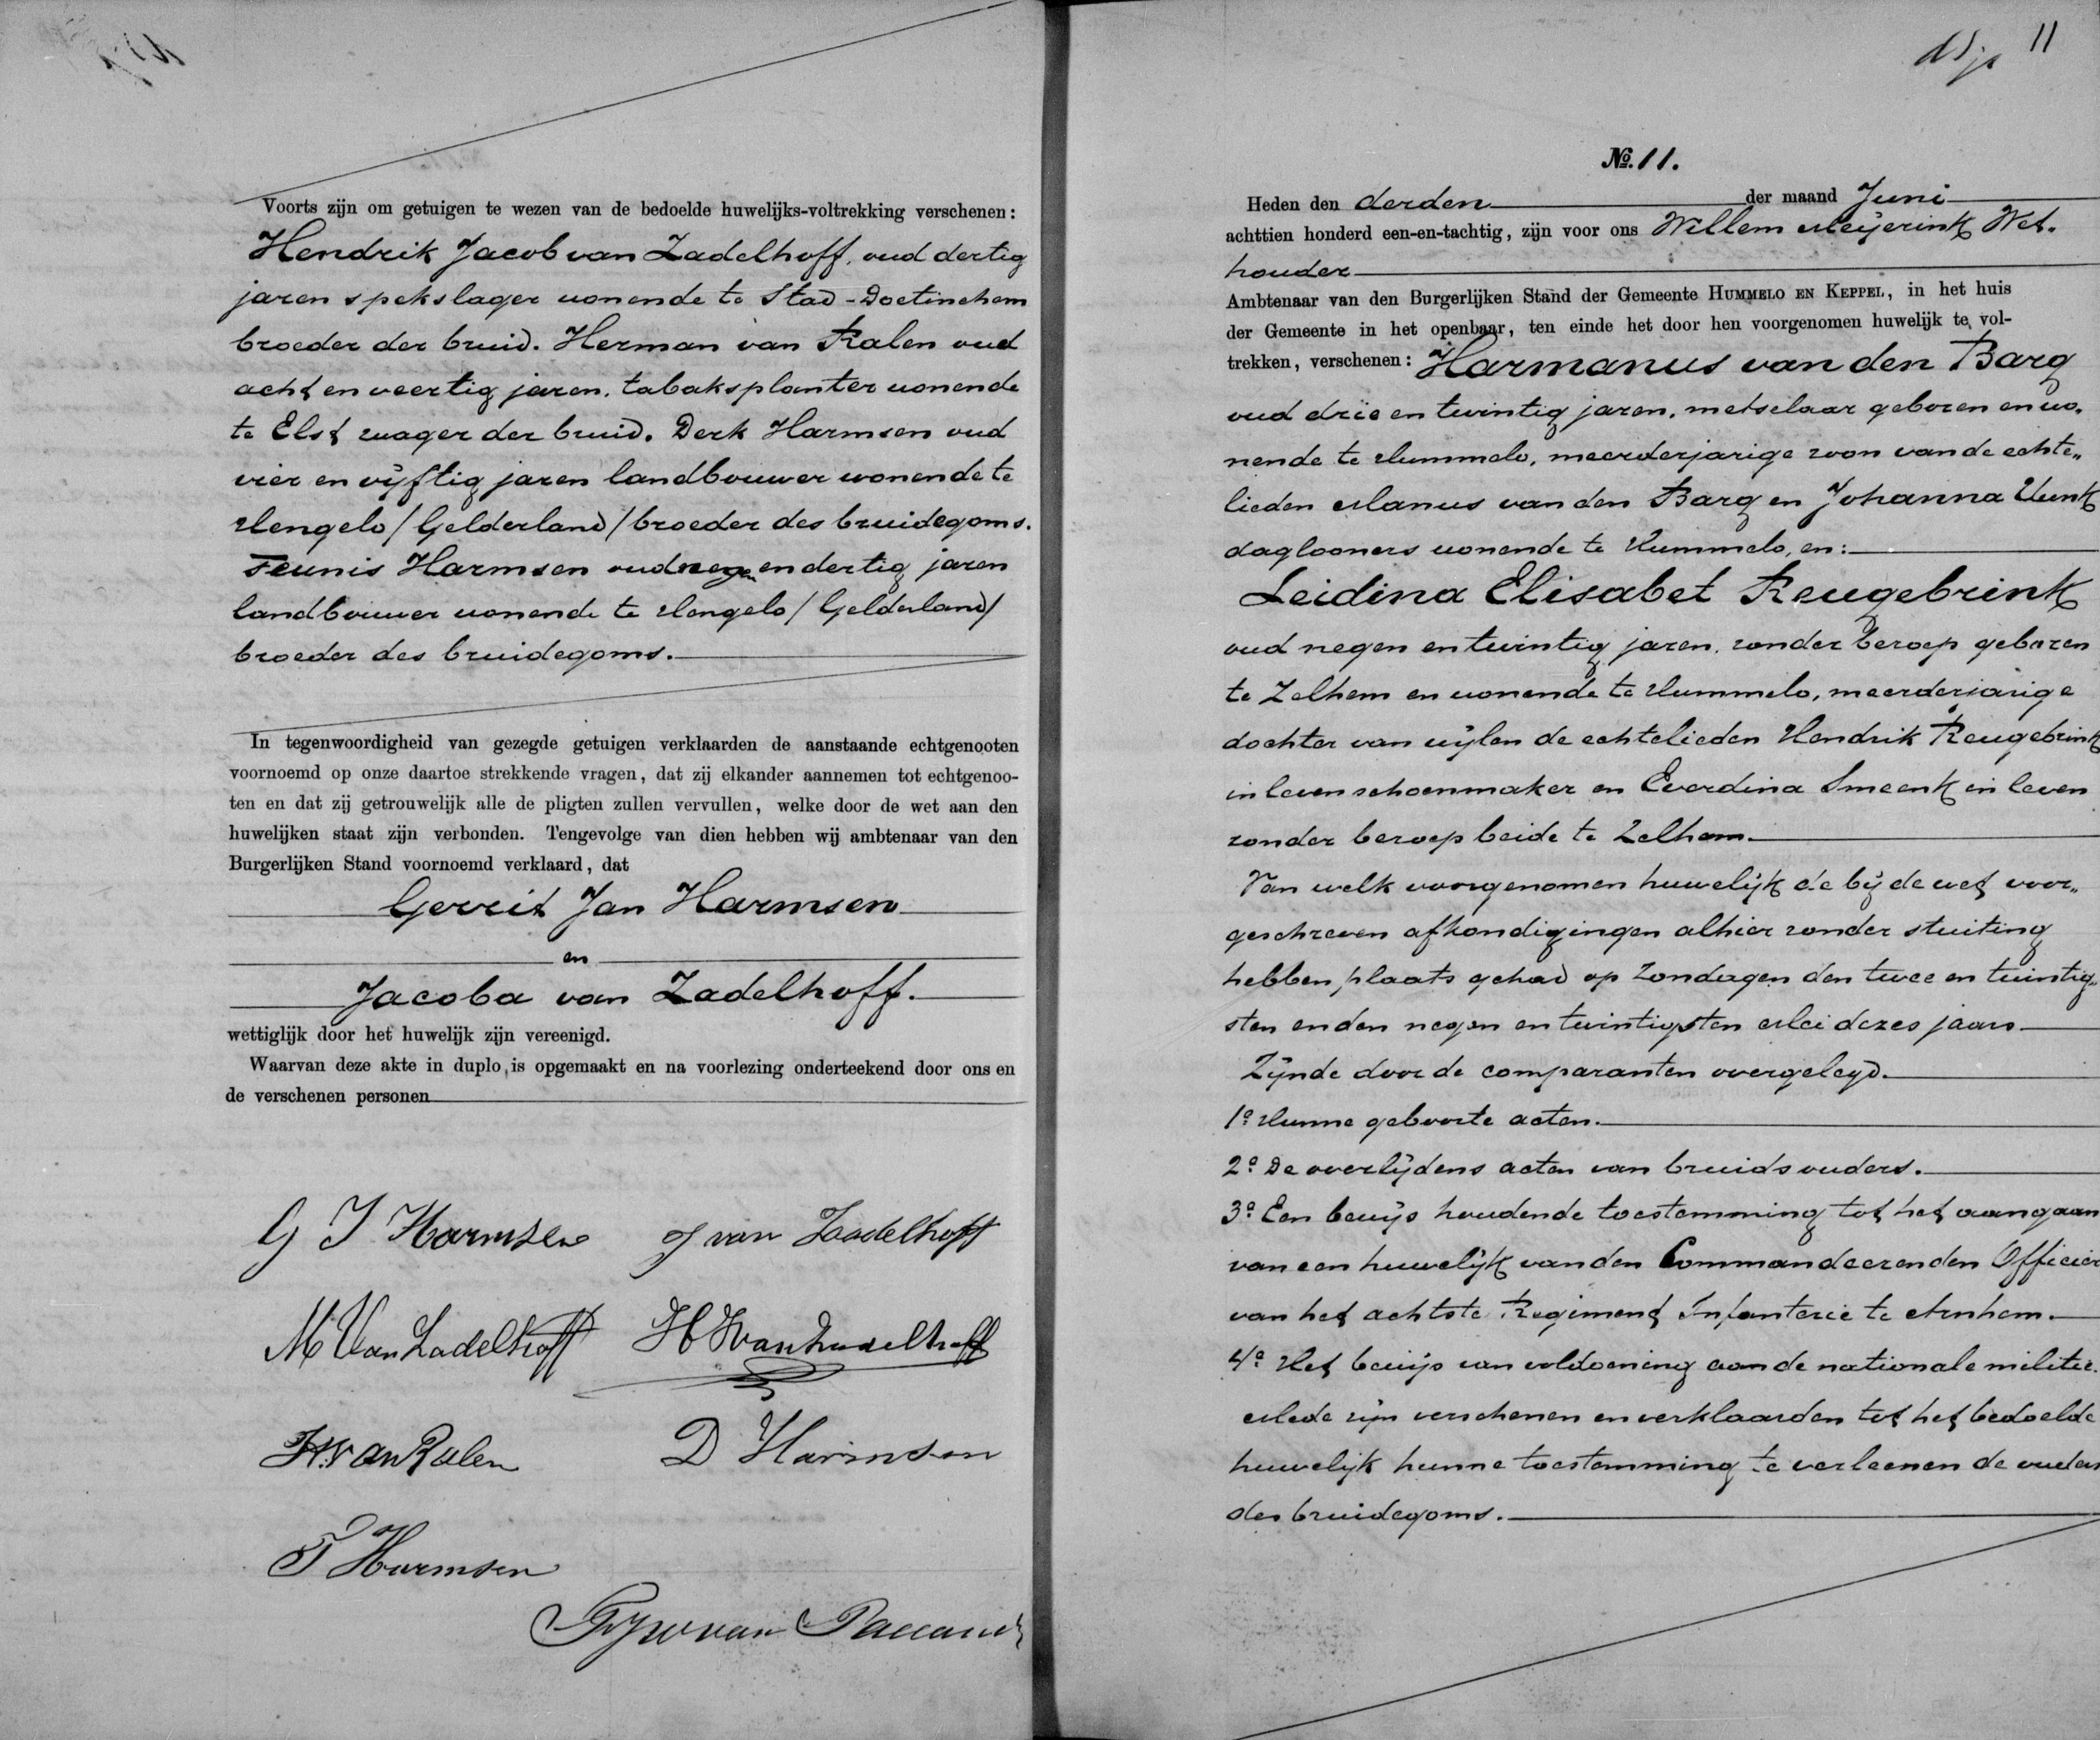 Voorts zijn om getuigen te wezen van de bedoelde huwelijks-voltrekking verschenen:
Hendrik Jacob van Zadelhoff, oud dertig
jaren spekslager wonende te Stad-Doetinchem
broeder der bruid. Herman van Ralen oud
acht en veertig jaren, tabaksplanter wonende
te Elst zwager der bruid. Derk Harmsen oud
vier en vijftig jaren landbouwer wonende te
Hengelo /Gelderland/ broeder des bruidegoms.
Teunis Harmsen oud negen en dertig jaren
landbouwer wonende te Hengelo /Gelderland/
broeder des bruidegoms.
In tegenwoordigheid van gezegde getuigen verklaarden de aanstaande echtgenooten
voornoemd op onze daartoe strekkende vragen, dat zij elkander aannemen tot echtgenoo-
ten en dat zij getrouwelijk alle de pligten zullen vervullen, welke door de wet aan den
huwelijken staat zijn verbonden. Tengevolge van dien hebben wij ambtenaar van den
Burgerlijken Stand voornoemd verklaard, dat
Gerrit Jan Harmsen
en
Jacoba van Zadelhoff.
wettiglijk door het huwelijk zijn vereenigd.
Waarvan deze akte in duplo is opgemaakt en na voorlezing onderteekend door ons en
de verschenen personen
G J Harmsen J van Zadelhoff
M Van Zadelhoff H J van Zadelhoff
H. van Ralen D Harmsen
T Harmsen
van Pallandt
11
No. 11.
Heden den derden der maand Juni
achttien honderd een-en-tachtig, zijn voor ons Willem Meijerink Wet-
houder
Ambtenaar van den Burgerlijken Stand der Gemeente HUMMELO EN KEPPEL, in het huis
der Gemeente in het openbaar, ten einde het door hen voorgenomen huwelijk te vol-
trekken, verschenen: Harmanus van den Barg
oud drie en twintig jaren, metselaar geboren en wo-
nende te Hummelo, meerderjarige zoon van de echte„
lieden Manus van den Barg en Johanna Uunk
daglooners wonende te Hummelo, en:
Leidina Elisabet Reugebrink
oud negen en twintig jaren, zonder beroep geboren
te Zelhem en wonende te Hummelo, meerderjarige
dochter van wijlen de echtelieden Hendrik Reugebrink
in leven schoenmaker en Everdina Smeenk in leven
zonder beroep beide te Zelhem.
Van welk voorgenomen huwelijk de bij de wet voor„
geschreven afkondigingen alhier zonder stuiting
hebben plaats gehad op Zondagen den twee en twintig„
sten en den negen en twintigsten Mei dezes jaars
Zijnde door de comparanten overgelegd.
1o Hunne geboorte acten.
2o De overlijdens acten van bruids ouders.
3o Een bewijs houdende toestemming tot het aangaan
van een huwelijk van den Commandeerenden Officier
van het achtste Regiment Infanterie te Arnhem.
4o Het bewijs van voldoening aan de nationale militie.
Mede zijn verschenen en verklaarden tot het bedoelde
huwelijk hunne toestemming te verleenen de ouders
des bruidegoms.